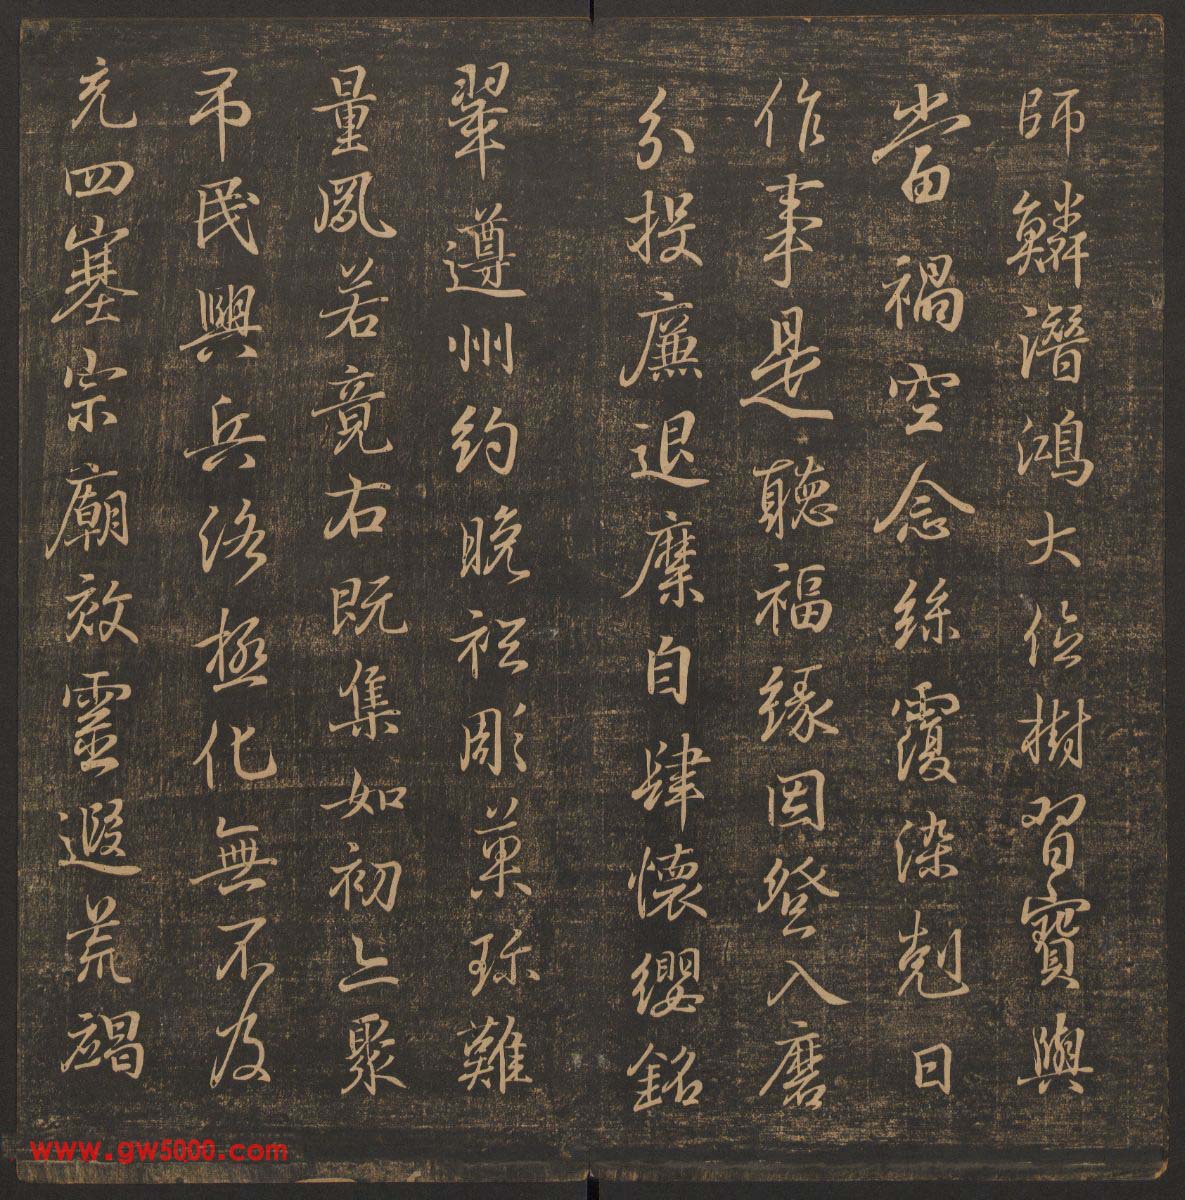 師鱗潛鴻大樹習寶與
當禍空念絲覆染剋日
作事是聽福緣因登入磨
分投廉退糜自肆懷纓銘
翠遵州約晚彫菓珍難
量鳳若竟右既集如初上聚
吊民興兵洛極化無不及
充四塞宗廟效靈遐荒
www.gw5000.com